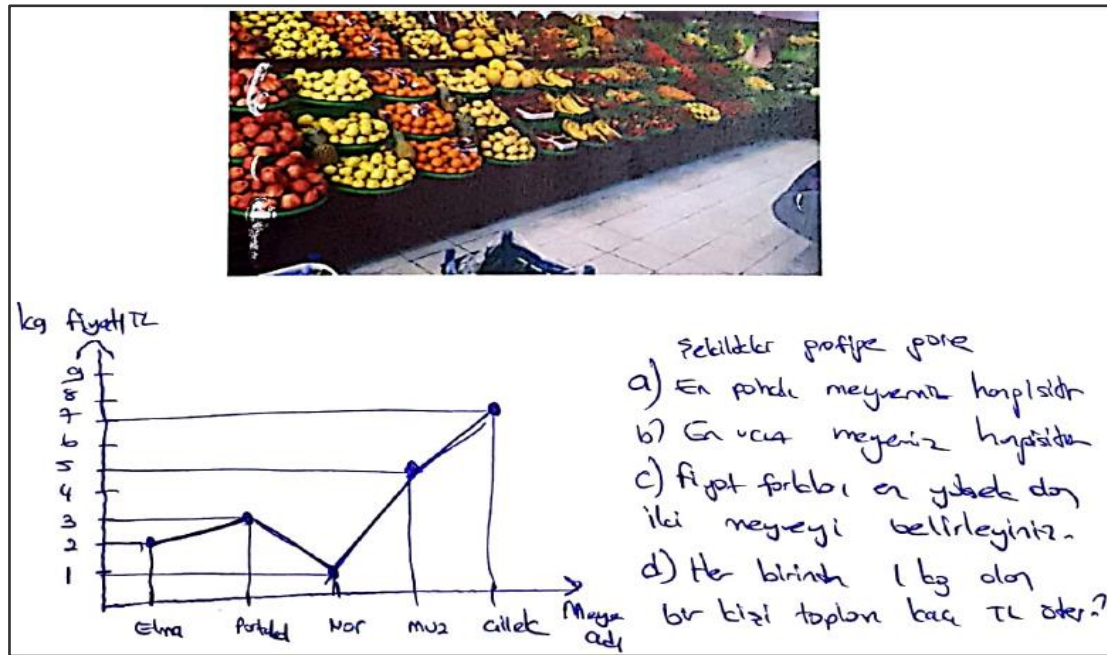 kg fiyatı/TL
9
8
7
6
5
4
3
2
1
Elma Portakal Nar muz Çillek Meyve adı
Şekildeki grafiğe göre
a) En pahalı meyvemiz hangisidir
b) En ucuz meyemiz hangisidir
c) fiyat farkları en yüksek olan
iki meyveyi belirleyiniz.
d) Her birinden 1 kg alan
bir kişi toplam kaç TL öder?